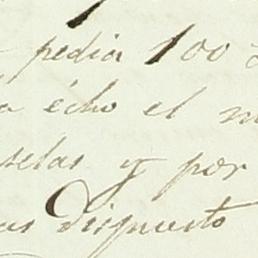 pedia 100
écho el
selas y por
Dispuesto